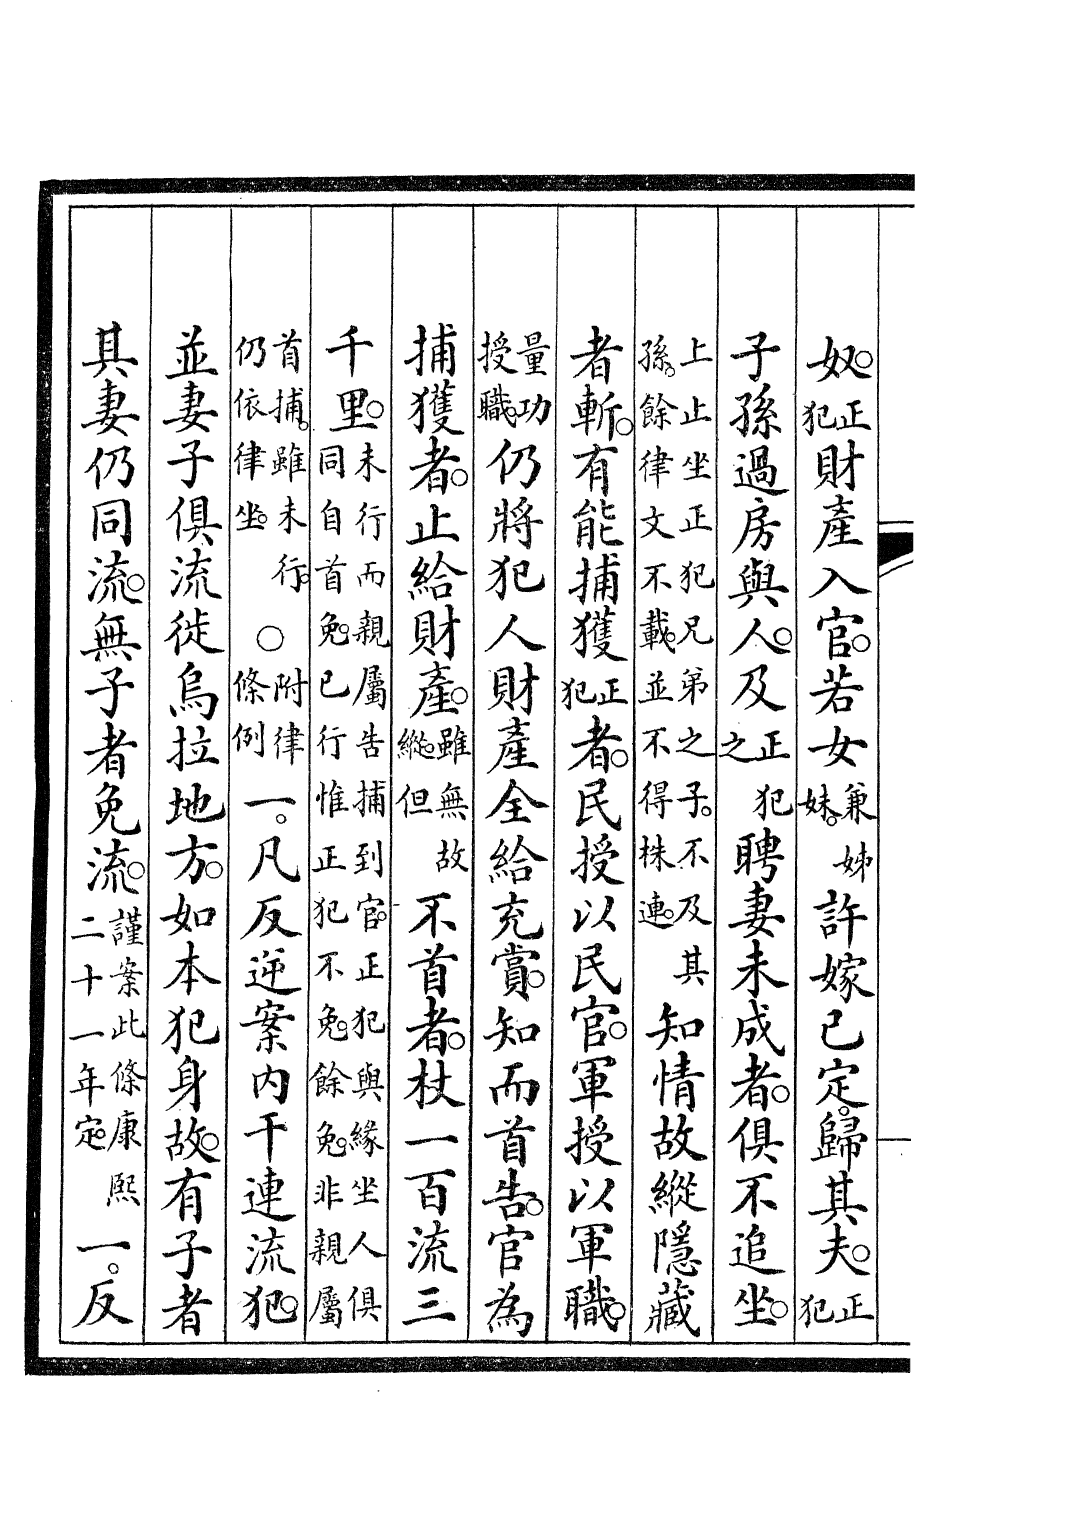 奴。正犯財產入官。若女兼姊妹。許嫁已定。歸其夫。正犯
子孫過房與人。及正犯之聘妻未成者。俱不追坐。
上止坐正犯兄弟之子。不及其孫。餘律文不載。並不得株連。知情故縱隱藏
者斬。有能捕獲正犯者。民授以民官。軍授以軍職。
量功授職。仍將犯人財產全給充賞。知而首告。官為
捕獲者。止給財產。雖無故縱。但不首者。杖一百流三
千里。未行而親屬告捕到官。正犯與緣坐人俱同自首免。已行惟正犯不免。餘免。非親屬
首捕。雖未行。仍依律坐。○附律條例一。凡反逆案內干連流犯。
並妻子俱流徙烏拉地方。如本犯身故。有子者
其妻仍同流。無子者免流。謹案此條康熙二十一年定。一。反